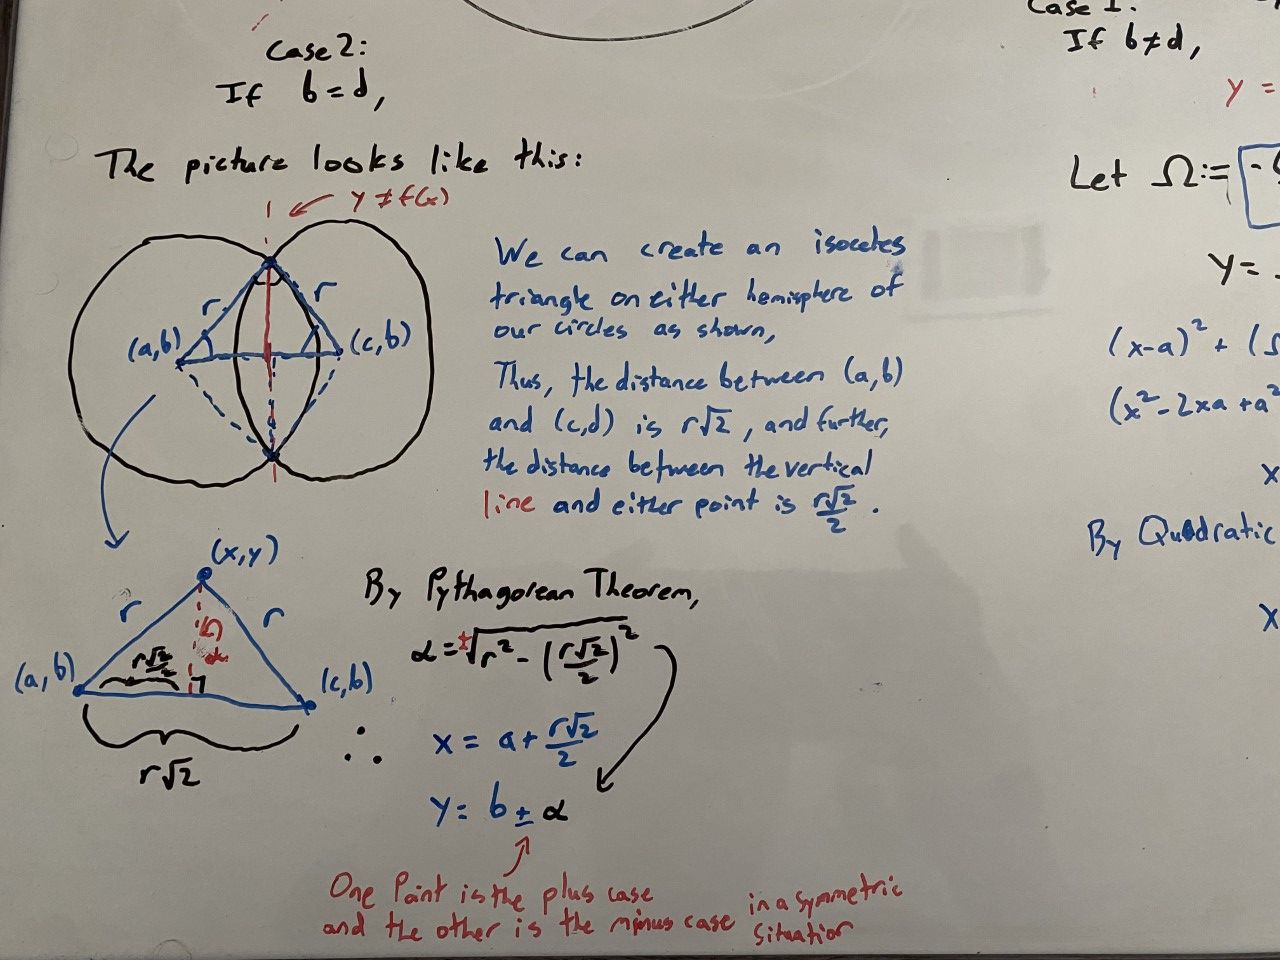 Case 2:
If b=d,
The picture looks like this:
y ≠ f(x)
r
r
(a,b)
(c,b)
We can create an isoceles
triangle on either hemisphere of
our circles as shown,
Thus, the distance between (a,b)
and (c,d) is r√2, and further,
the distance between the vertical
line and either point is r√2/2.
(x,y)
r
r
α
r√2/2
(a,b)
(c,b)
r√2
By Pythagorean Theorem,
α=±√r²-(r√2/2)²
∴
x = a+r√2/2
y= b±α
One Point is the plus case
and the other is the minus case
in a symmetric
situation
Case 1:
If b≠d,
y =
Let Ω:=
y=
(x-a)² + (
(x²-2xa+a²
x
By Quadratic
x